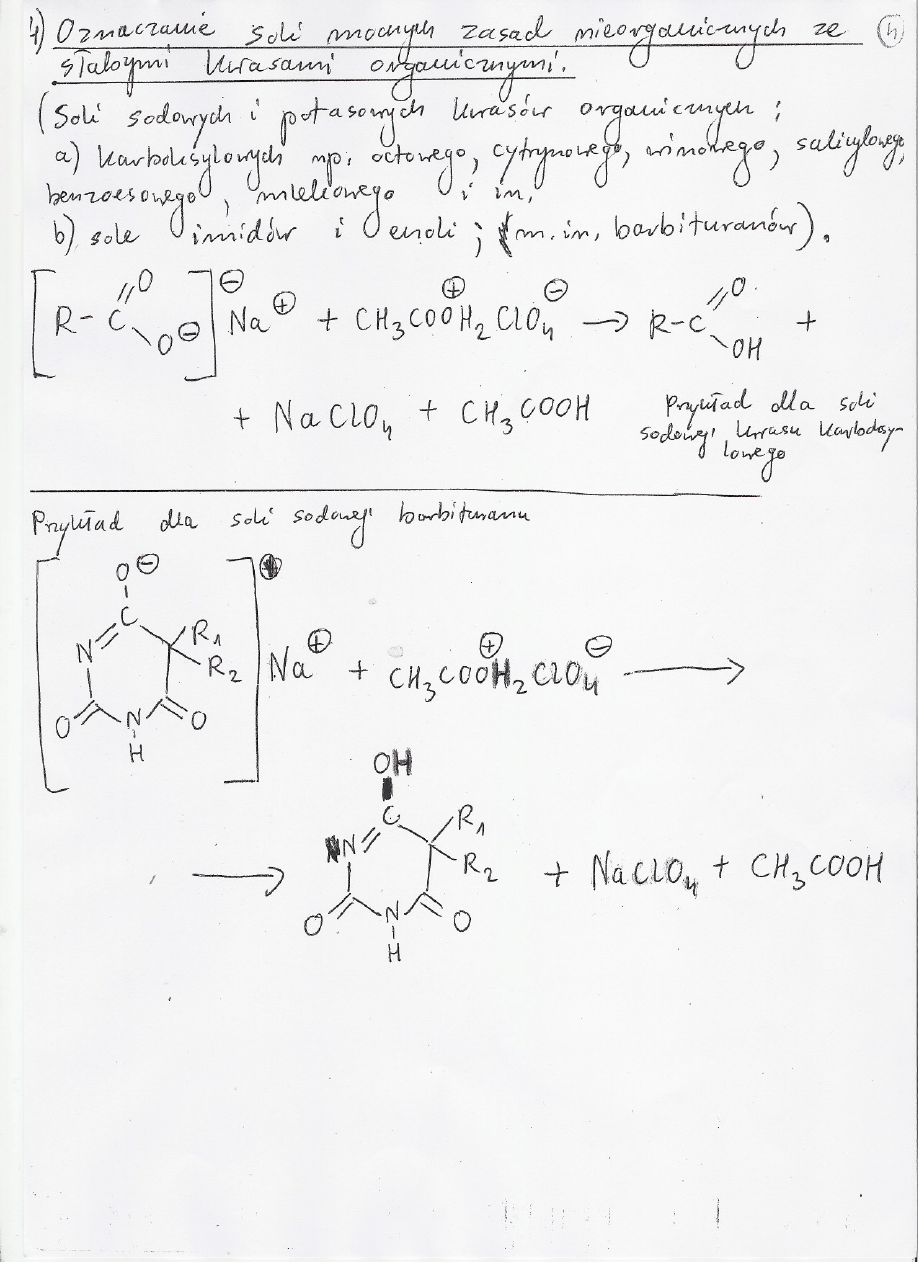 4) Oznaczanie soli mocnych zasad nieorganicznych ze (4)
słabymi kwasami organicznymi.
(Soli sodowych i potasowych kwasów organicznych;
a) karboksylowych np. octowego, cytrynowego, winowego, salicylowego,
benzoesowego, mlekowego i in.
b) sole imidów i enoli; (m.in. barbituranów).
[R-C(=O)O⊖]⊖ Na⊕ + CH₃COOH₂⊕ ClO₄⊖ → R-C(=O)OH +
+ NaClO₄ + CH₃COOH
Przykład dla soli
sodowej kwasu karboksy-
lowego
Przykład dla soli sodowej barbituranu
O⊖
C
N
R₁
R₂
O
N
H
O
Na⊕ + CH₃COOH₂⊕ ClO₄⊖ →
OH
C
N
R₁
R₂
O
N
H
O
→ + NaClO₄ + CH₃COOH